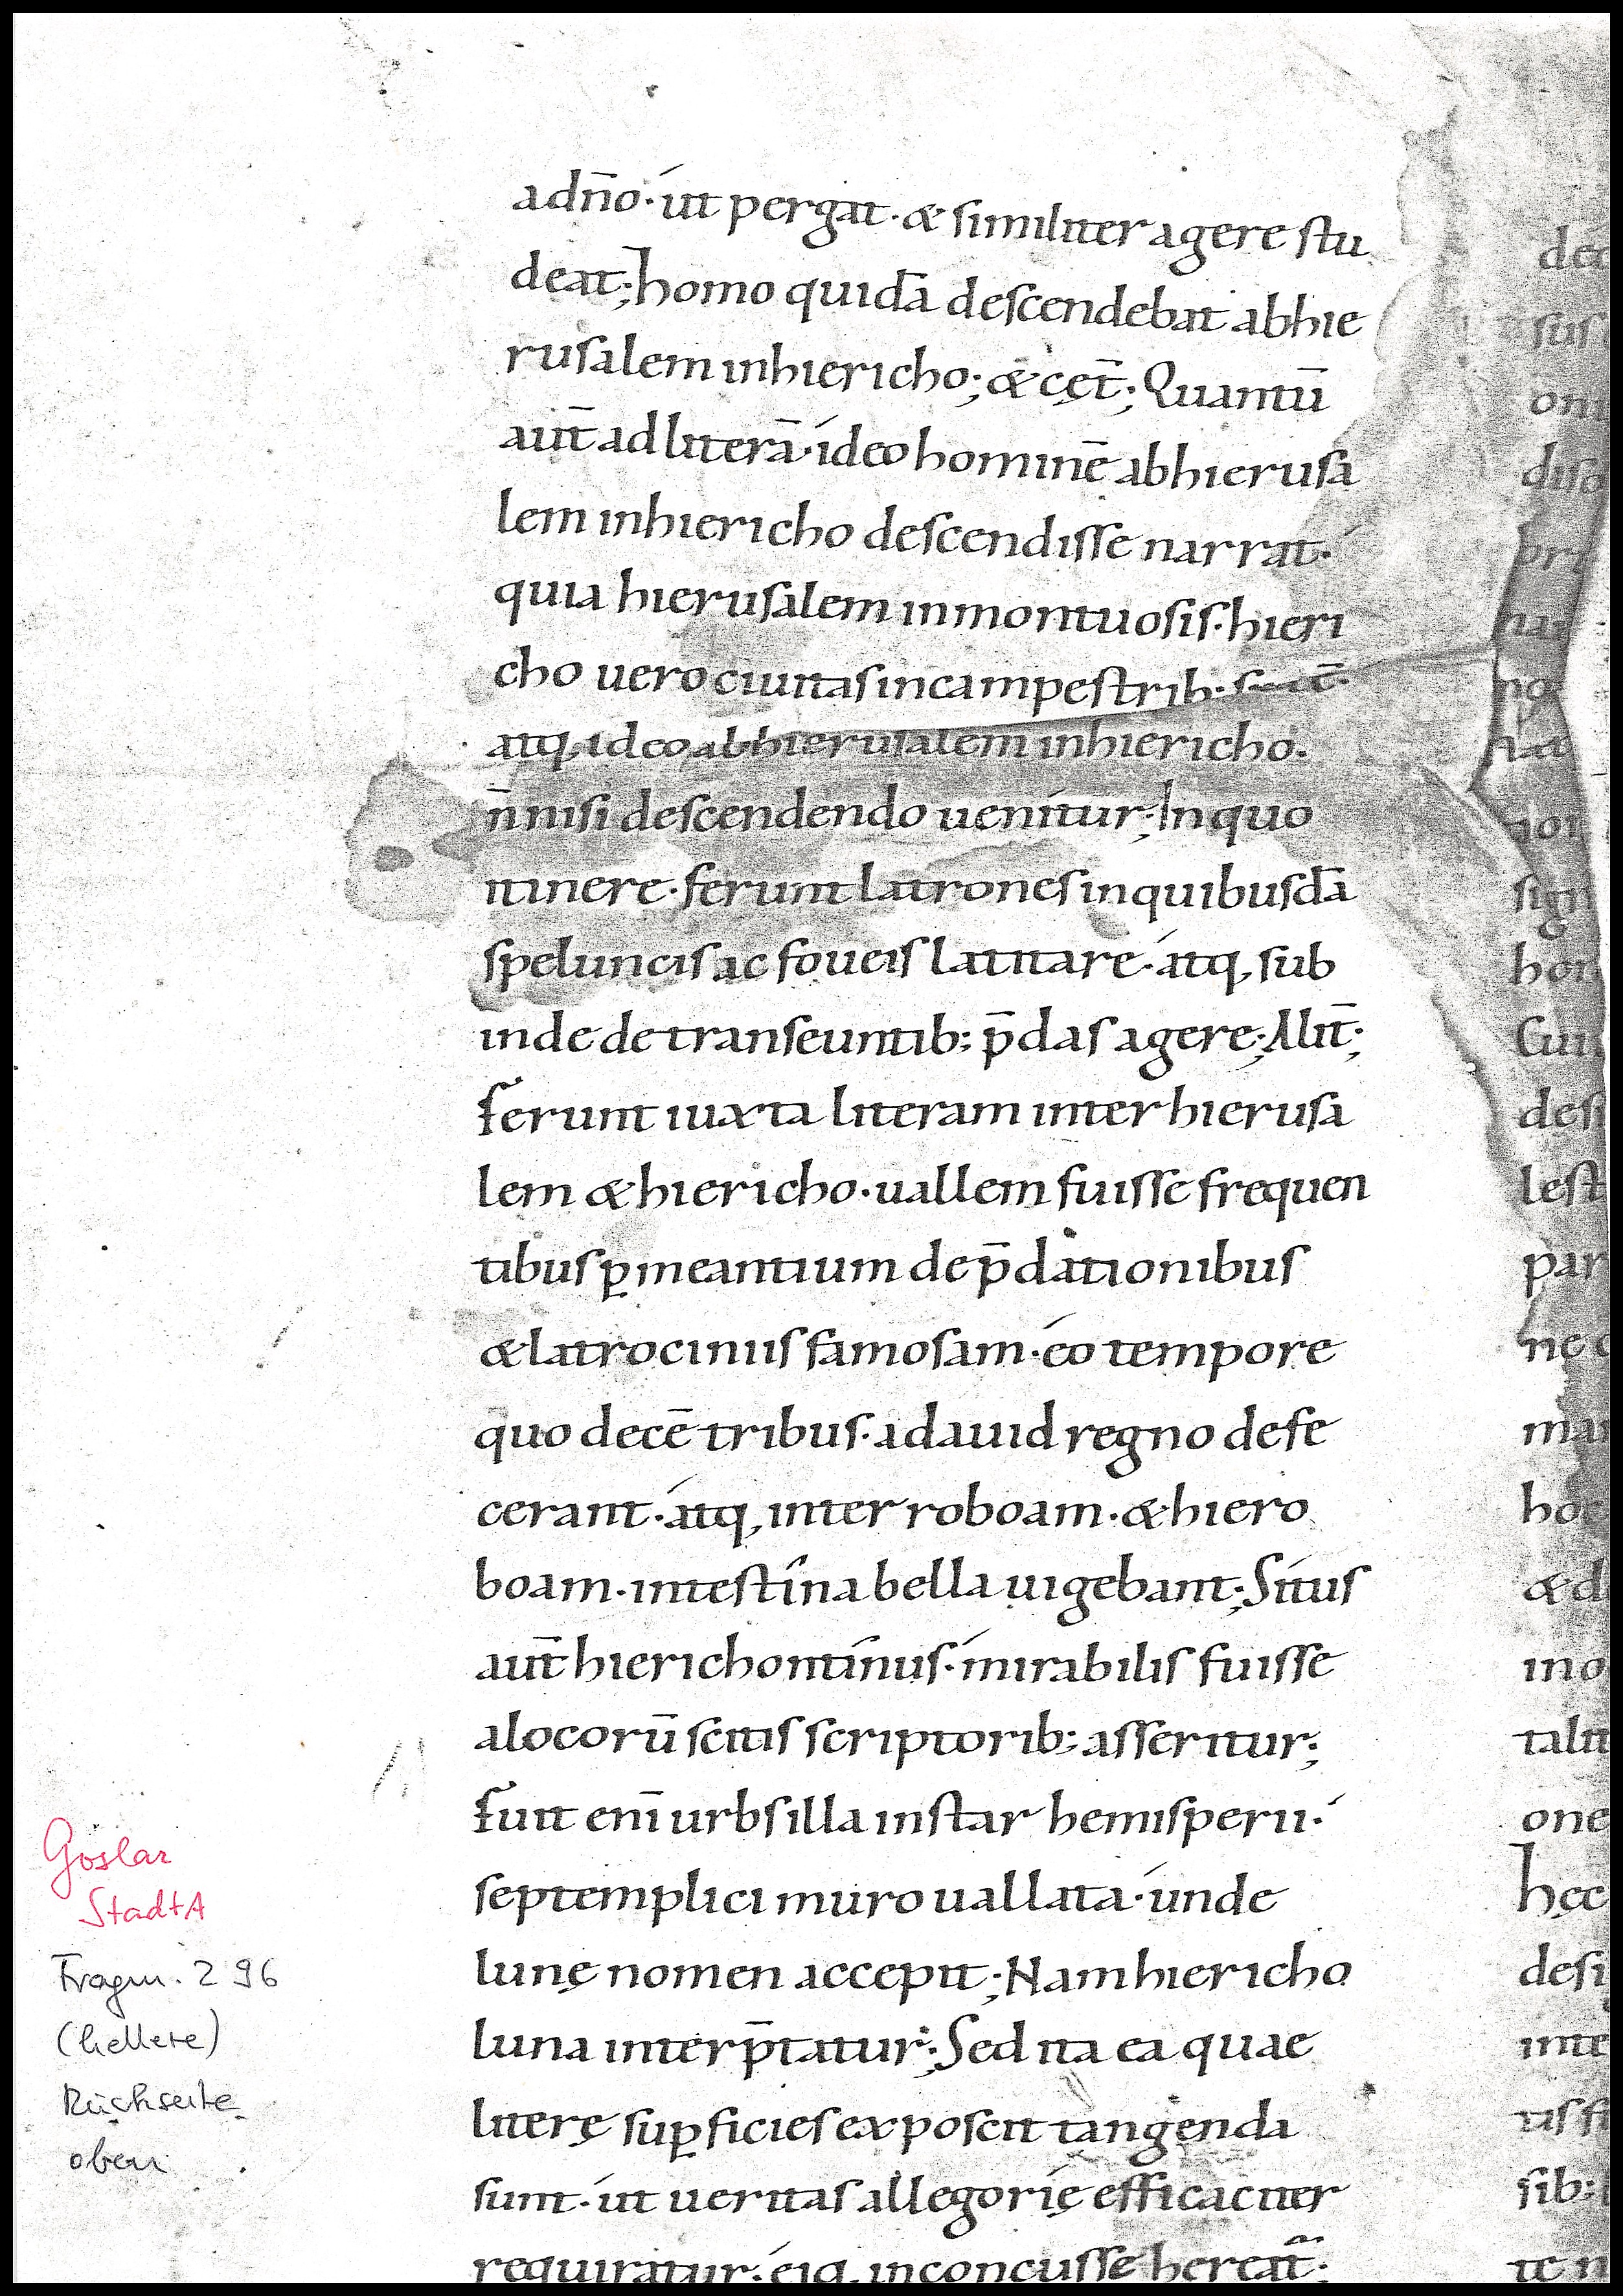 adn̄o· ut pergat· & similiter agere stu
deat; homo quidā descendebat abhie
rusalem inhiericho; & cęt̄; Quantū
aut̄ ad literā· ideo hominē abhierusa
lem inhiericho descendisse narrat·
quia hierusalem inmontuosis· hieri
cho uero ciuitas incampestrib·
atq, ideo abhierusalem inhiericho·
n̄ nisi descendendo uenitur; In quo
itinere· ferunt latrones inquibusdā
speluncis ac foueis latitare· atq, sub
inde de transeuntib; p̄das agere; Alit̄;
ferunt iuxta literam inter hierusa
lem & hiericho· uallem fuisse frequen
tibus ꝑmeantium dep̄dationibus
& latrociniis famosam· eo tempore
quo decē tribus· adauid regno defe
cerant· atq, inter roboam· & hiero
boam· intestina bella uigebant; Situs
aut̄ hierichontinus· mirabilis fuisse
alocorū scitis scriptorib; asseritur;
fuit eni̅ urbs illa instar hemisperii·
septemplici muro uallata· unde
lunę nomen accepit; Nam hiericho
luna interp̄tatur; Sed ita ea quae
literę suꝑficies exposcit tangenda
sunt· ut ueritas allegorię efficaciter
requiratur· eiq, inconcusse hereat̄;
ded
sus
om
disc
pri
na
no
hat
non
sign
hon
Cui
desi
lest
par
nę c
mar
hoc
& d
ino
talit
one
hęc
desi
inte
tis fi
sib;
te n
Goslar
StadtA
Fragm. 296
(hellere)
Rückseite
oben